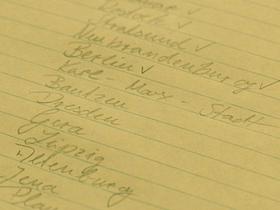 Rostock ✓
Stralsund ✓
Neubrandenburg ✓
Berlin ✓
Karl-Marx-Stadt
Bautzen
Dresden
Gera
Leipzig
Altenburg
Jena
Plau